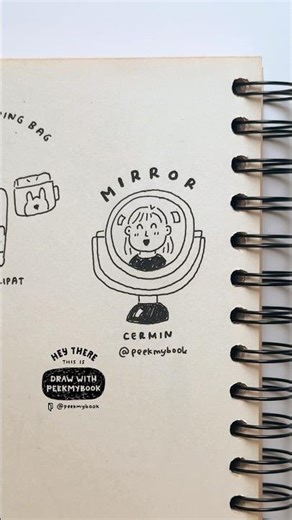 ING BAG
MIRROR
LIPAT
CERMIN
@peekmybook
HEY THERE
THIS IS
DRAW WITH
PEEKMYBOOK
@peekmybook